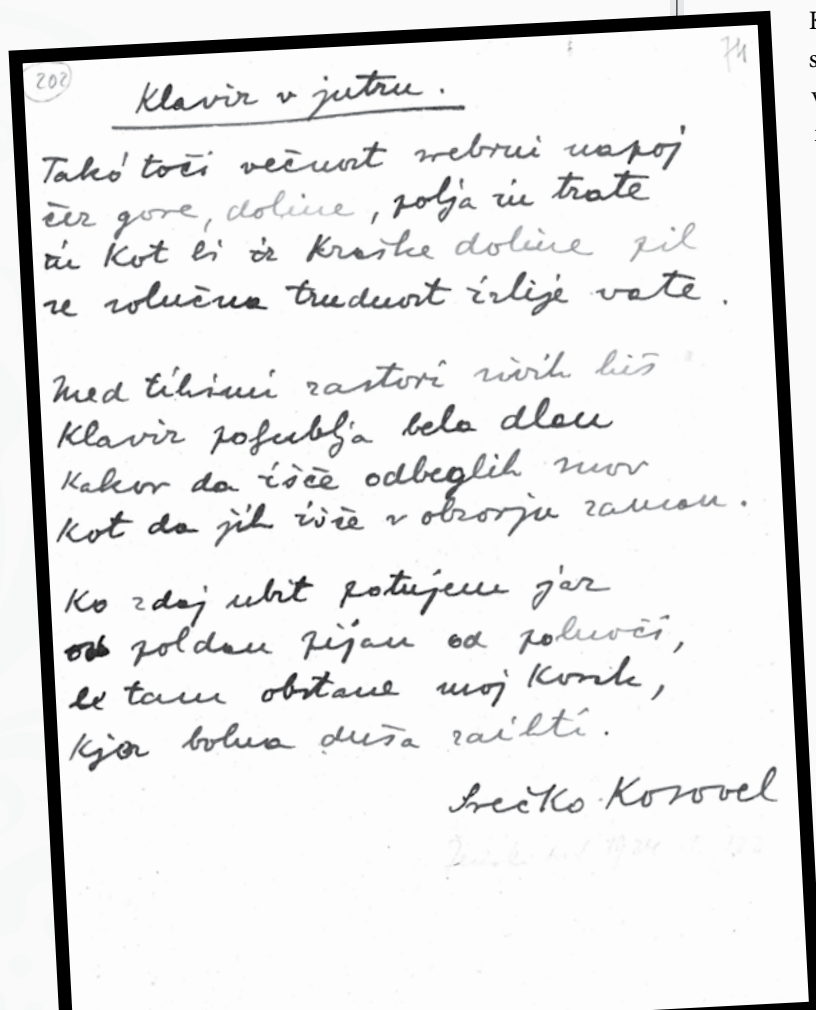 202
74
Klavir v jutru.
Tako toči večnost srebrni napoj
čez gore, doline, polja in trate
in kot bi iz kraške doline pil
se solučna trudnost izlije vate.
Med tihimi zastori sivih hiš
Klavir pogublja bela dlan
kakor da išče odbeglih snov
kot da jih išče v obzorju zaman.
Ko zdaj ubit potujem jaz
poldan pijan od polnoči,
le tam obstane moj korak,
kjer bolna duša zaihti.
Srečko Kosovel